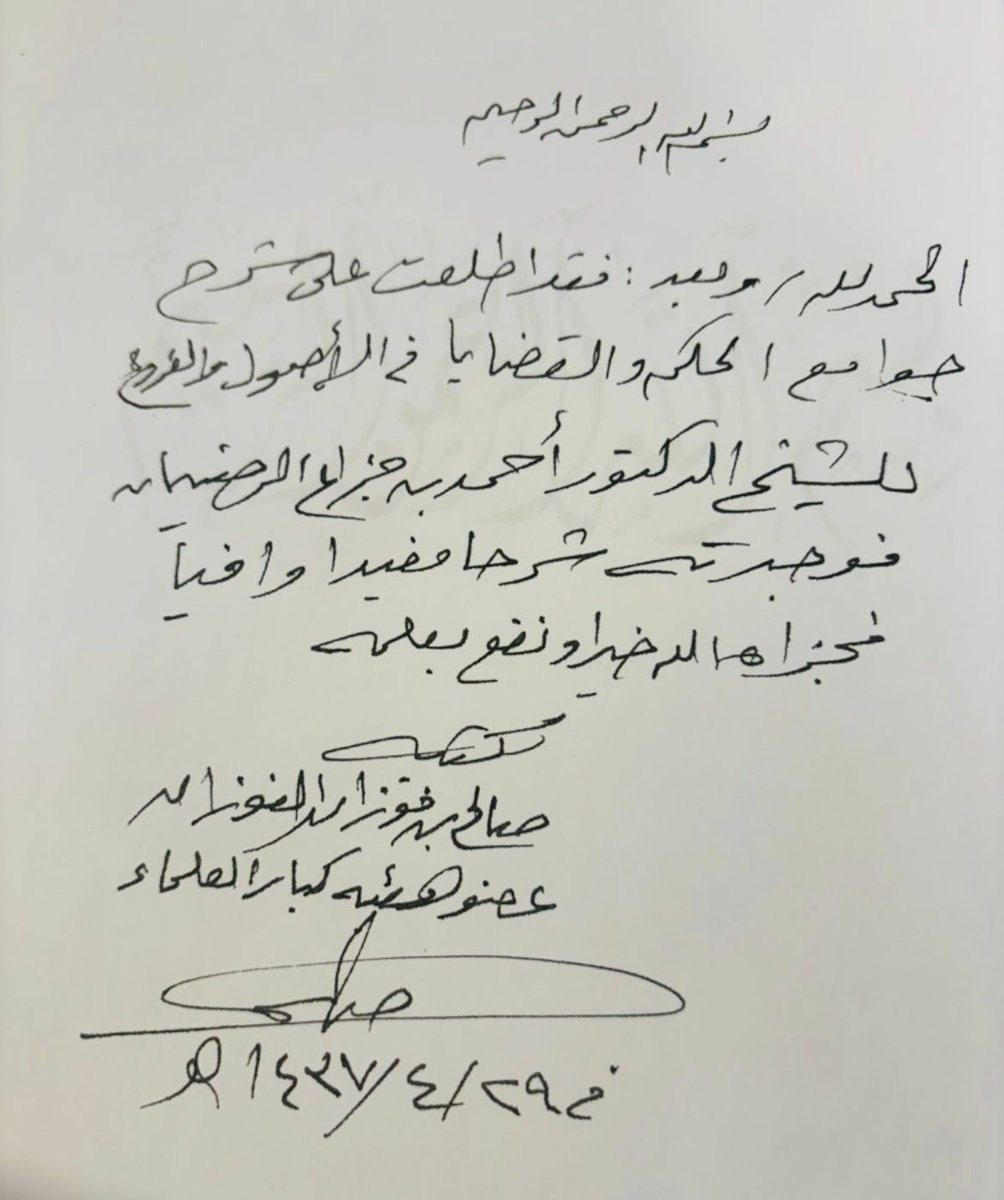 بسم الله الرحمن الرحيم
الحمد لله / وبعد : فقد اطلعت على شرح
جوامع الحكم والقضايا في الأصول والفروع
للشيخ الدكتور أحمد بن جزاع الرضيمان
فوجدته شرحا مفيدا وافياً
فجزاه الله خيرا ونفع بعلمه
كتبه
صالح بن فوزان الفوزان
عضو هيئة كبار العلماء
صالح
في ٢٩/٤/١٤٣٧هـ